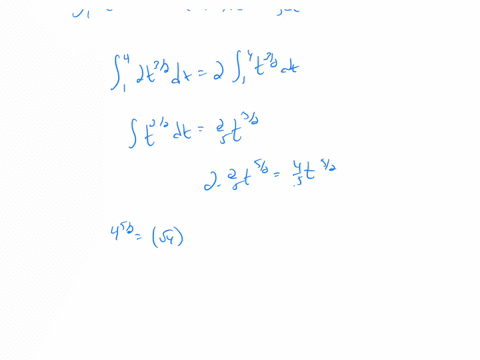 ∫₁⁴ 2t^{3/2} dx = 2 ∫₁⁴ t^{3/2} dt
∫ t^{3/2} dt = 2/5 t^{3/2}
2 · 2/5 t^{5/2} = 4/5 t^{5/2}
4^{5/2} = (√4)